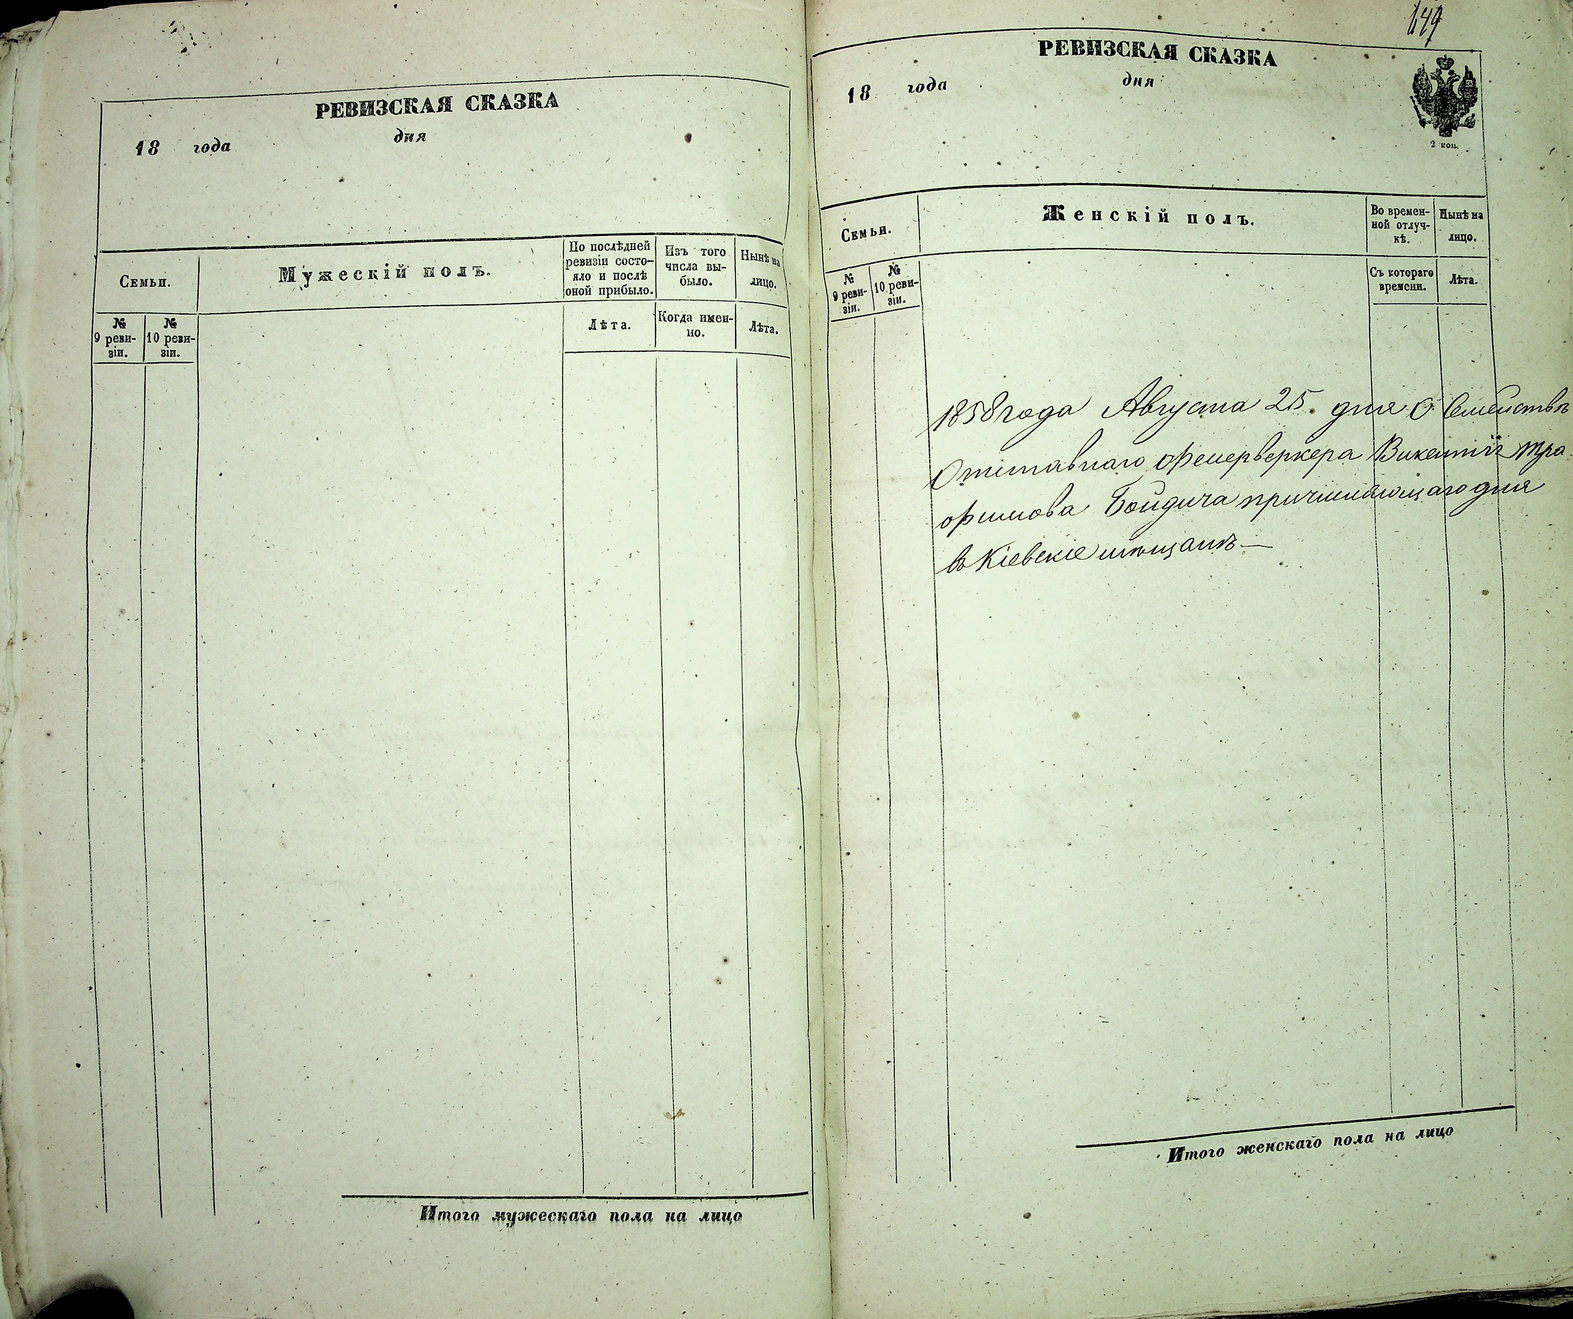 РЕВИЗСКАЯ СКАЗКА
18 года дня
Семьи.
Мужескій полъ.
По послѣдней
ревизіи состо-
яло и послѣ
оной прибыло.
Изъ того
числа вы-
было.
Нынѣ на
лицо.
№
9 реви-
зіи.
№
10 реви-
зіи.
Лѣта.
Когда имен-
но.
Лѣта.
Итого мужескаго пола на лицо
649
РЕВИЗСКАЯ СКАЗКА
18 года дня
2 коп.
Семьи.
Женскій полъ.
Во времен-
ной отлуч-
кѣ.
Нынѣ на
лицо.
№
9 реви-
зіи.
№
10 реви-
зіи.
Съ котораго
времени.
Лѣта.
1858 года Августа 25 дня О Семействѣ
Отставнаго фейерверкера Викентія Тра
фимова Бойдича причисляющагося
въ Кіевскіе мѣщане —
Итого женскаго пола на лицо